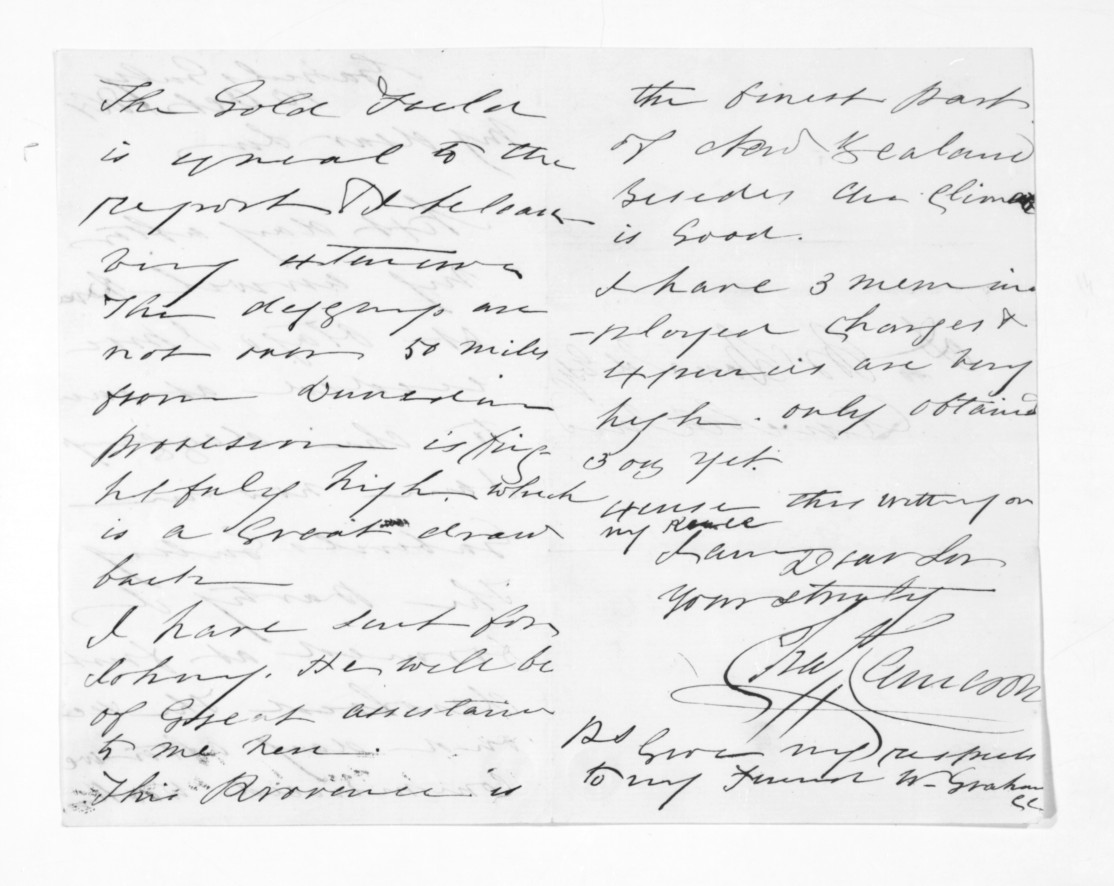 The Gold Field
is equeal to the
report & I beleave
very extensive
The diggings are
not over 50 miles
from Dunedin
provesion is frig-
htfuly high. which
is a Great draw
back
I have sent for
Johny. He will be
of Great assistance
to me here.
This Provence is
the finest part
of New Zealand
Besedes the Climate
is Good.
I have 3 men im
-ployed Charges &
expencies are very
high. only obtained
3 oz yet.
excuse this writting on
my knee
I am Dear Sir
Yours truly
Cameron
Ps Give my respects
to my Friend W Graham